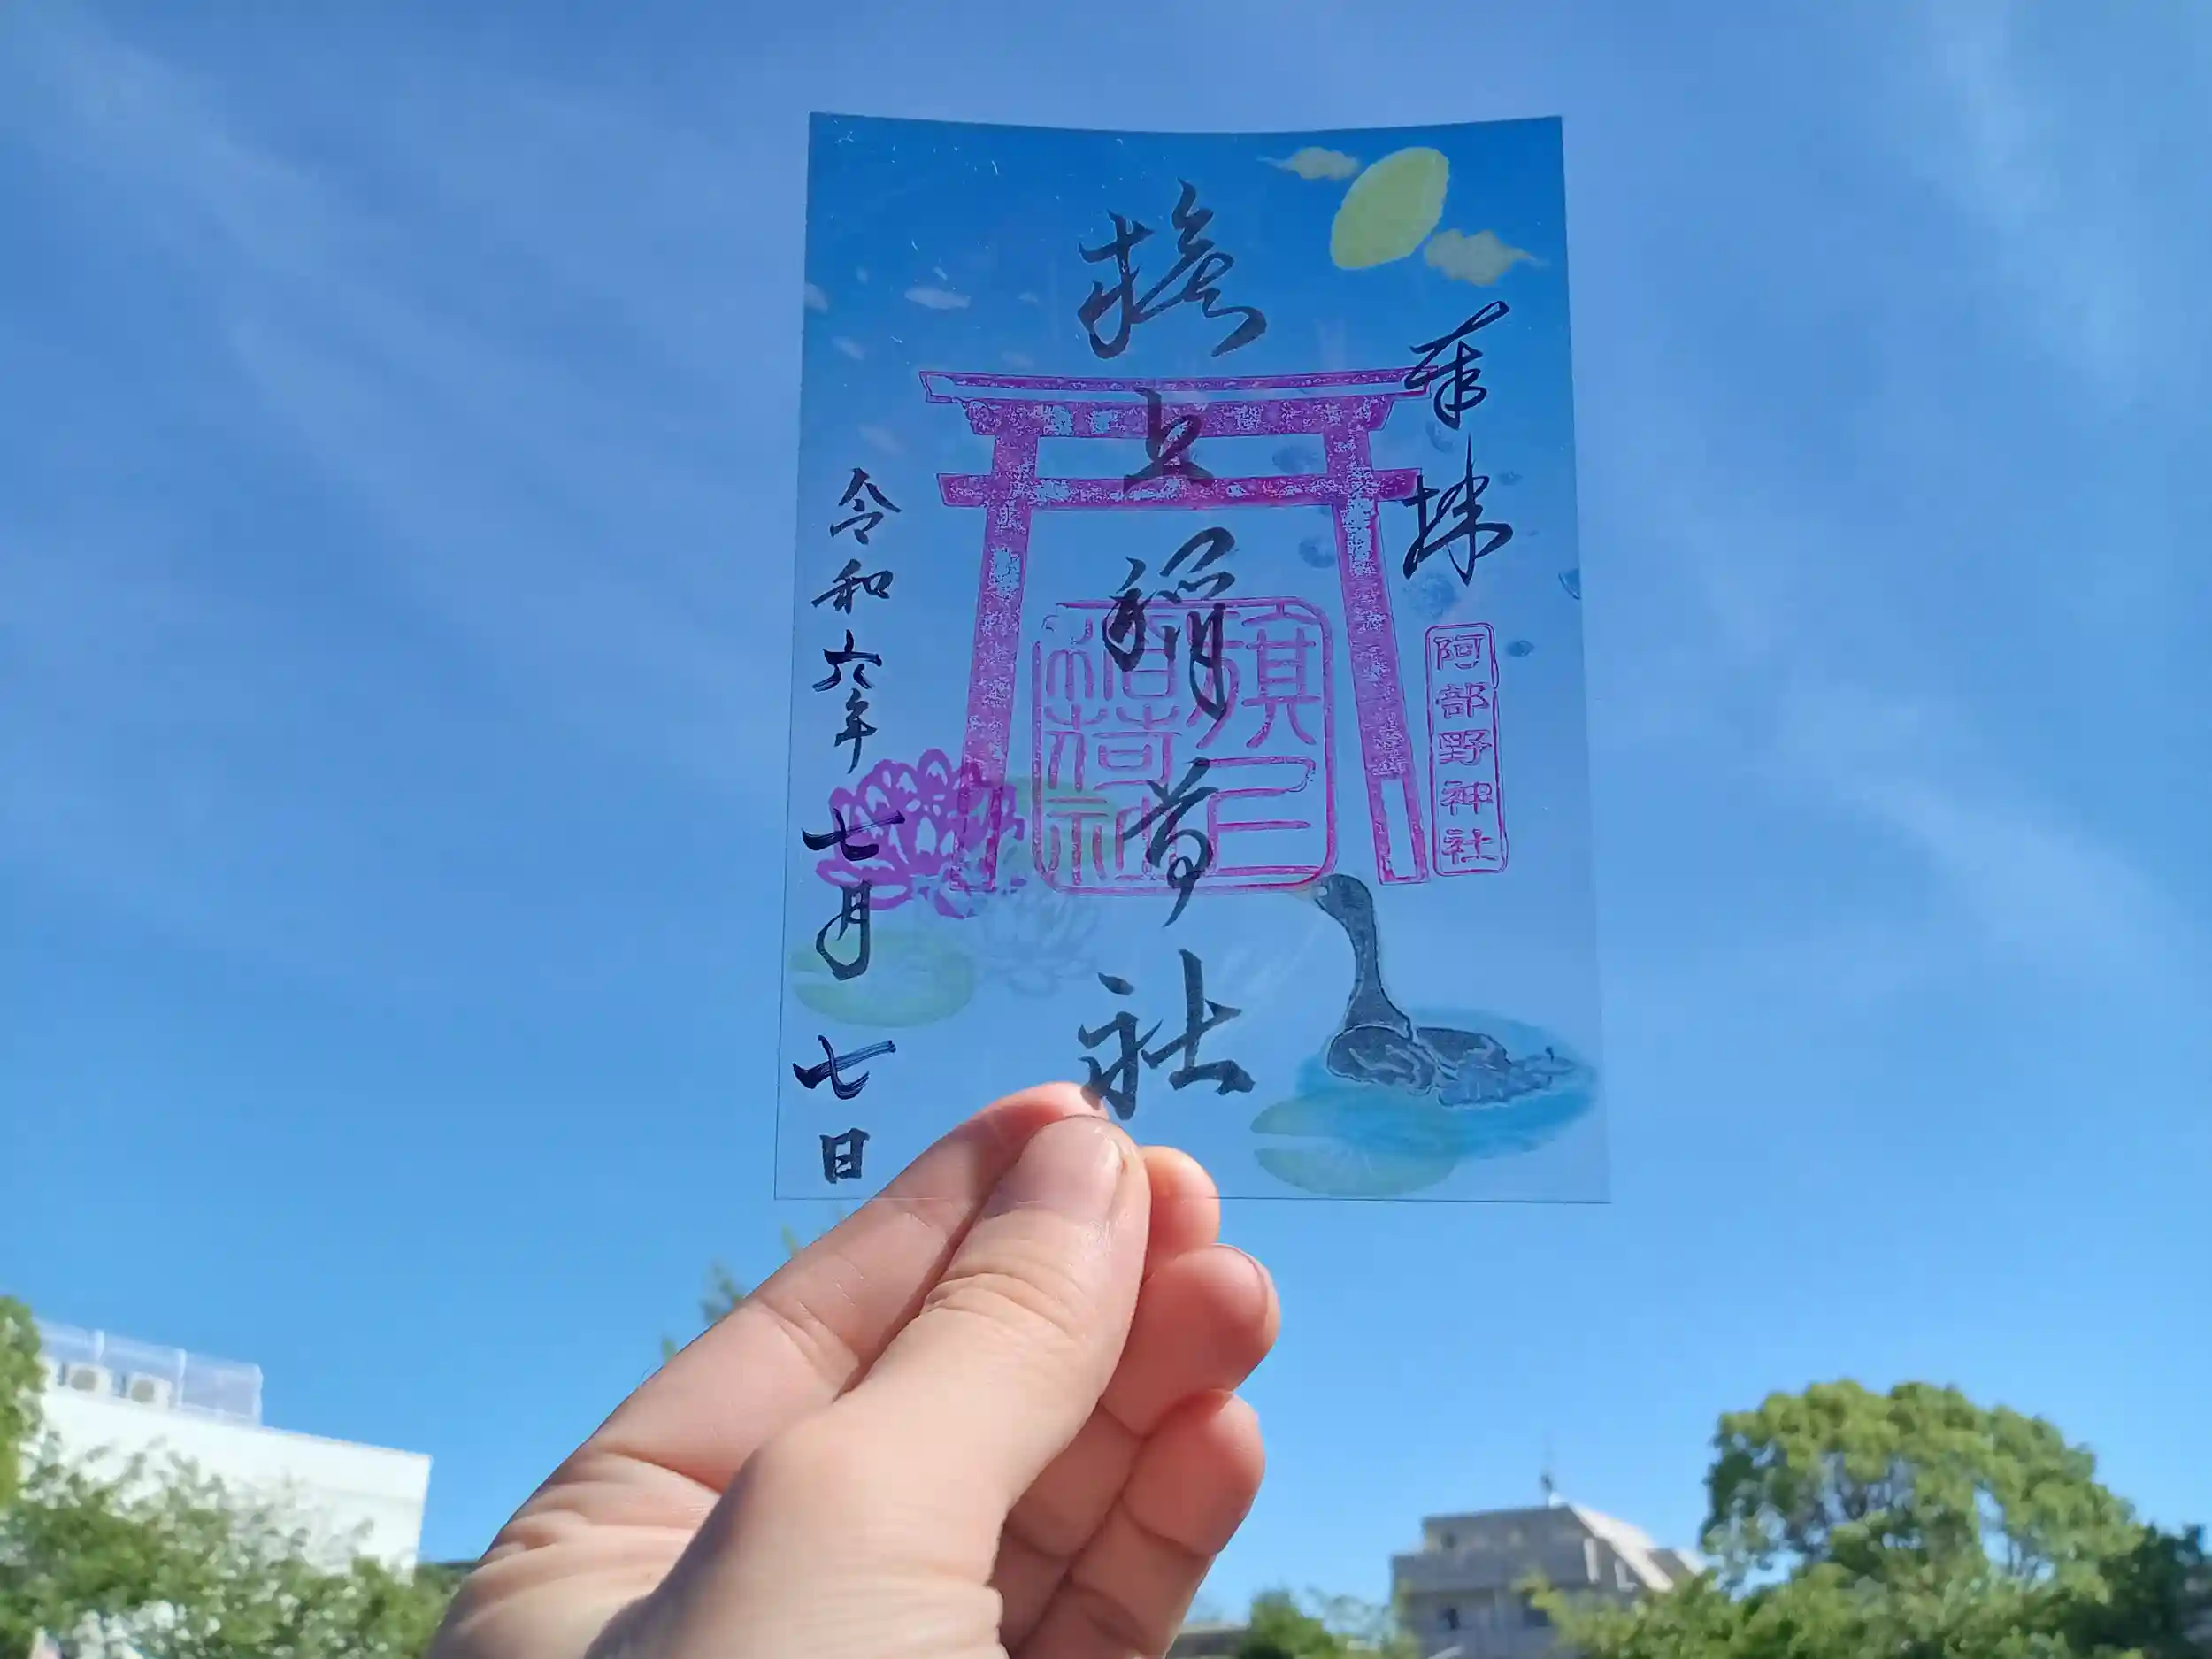 奉拝
阿部野神社
旗上稲荷社
旗上
稲荷社
令和六年七月七日